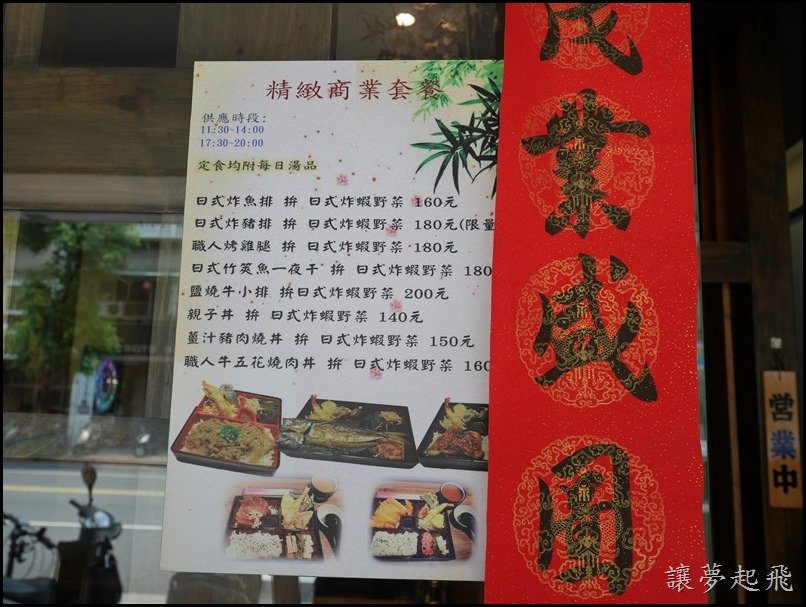 精緻商業套餐
供應時段:
11:30~14:00
17:30~20:00
定食均附每日湯品
日式炸魚排 拚 日式炸蝦野菜 160元
日式炸豬排 拚 日式炸蝦野菜 180元(限量
職人烤雞腿 拚 日式炸蝦野菜 180元
日式竹筴魚一夜干 拚 日式炸蝦野菜 180
鹽燒牛小排 拚日式炸蝦野菜 200元
親子丼 拚 日式炸蝦野菜 140元
薑汁豬肉燒丼 拚 日式炸蝦野菜 150元
職人牛五花燒肉丼 拚 日式炸蝦野菜 160
業盛開
営業中
讓夢起飛